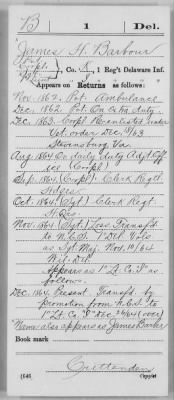 B 1 Del.
James H. Barbour
Corpl, Co. K, 1 Reg't Delaware Inf.
Appears on Returns as follows:
Nov. 1862. Pvt. Ambulance
Dec. 1862. Pvt. On extra duty.
Dec. 1863. Corpl Re-enlisted under
Vet. order Dec. /63
Stevensburg Va.
Aug. 1864 On daily duty Adjt. Off-
ice (Corpl)
Sep. 1864 (Corpl) Clerk Regtl.
Hdqrs.
Oct. 1864 (Sgt) Clerk Regtl
Hdqrs.
Nov. 1864 (Sgt) Loss Transf'd
to N.C.S. 1" Del. Vols
as Sgt. Maj. Nov. 10/64
Wil. Del.
Appears as 1" Lt. Co. as
follows.
Dec. 1864. Present Transfd. by
promotion from N.C.S. to
1" Lt. Co. Dec /64 (over)
Name also appears as James Barber
Book mark
Crittenden
(646) Copyist